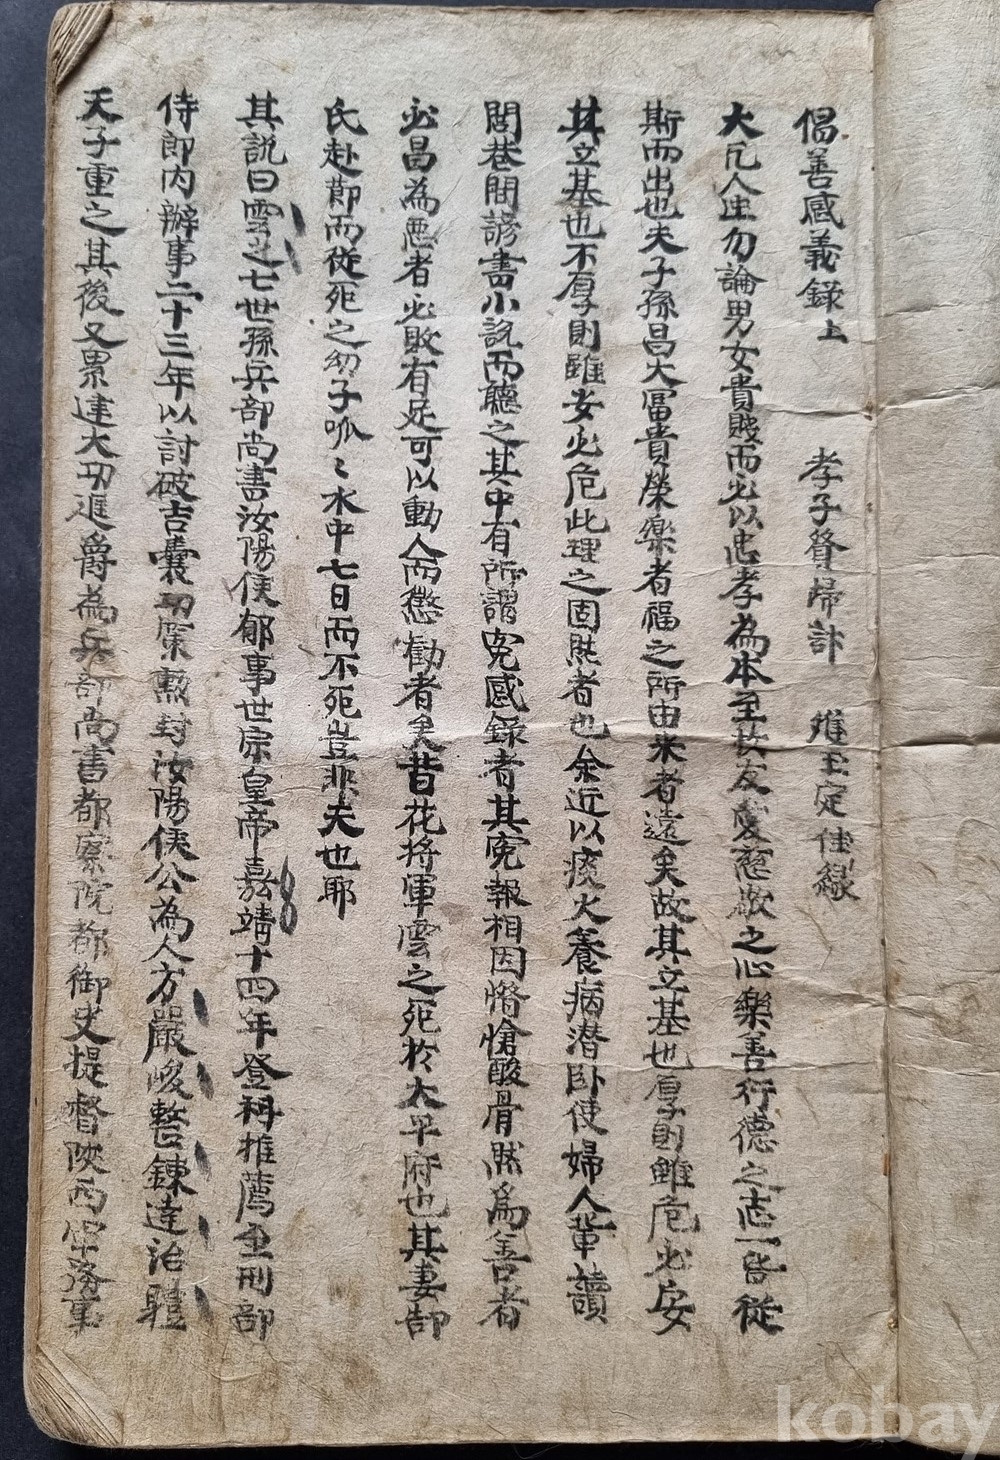 倡善感義錄上 孝子 歸 定佳緣
大凡人生勿論男女貴賤而必以忠孝為本至於友愛慈敬之心樂善行德之志一皆從
斯而出也夫子孫昌大富貴榮樂者福之所由来者遠矣故其立基也厚則雖危必安
其立基也不厚則雖安必危此理之固然者也余近以痰火養病潜卧使婦人輩讀
閭巷間諺書小說而聽之其中有所謂寃感錄者其寃報相因憯愴酸骨然為善者
必昌為悪者必敗有足可以動人而懲勸者矣昔花將軍雲之死於太平府也其妻郜
氏赴節而從死之幼子呱〻水中七日而不死豈非夫也耶
其說曰雲之七世孫兵部尚書汝陽侯郁事世宗皇帝嘉靖十四年登科推薦至刑部
侍郎內辦事二十三年以討破吉囊功策勲封汝陽侯公為人方嚴峻整鍊達治軆
天子重之其後又累建大功進爵為兵部尚書都察院都御史提督陝西軍務事
kobay